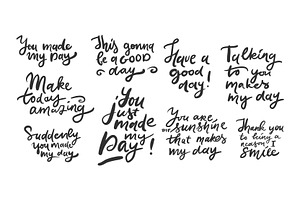 You made
my Day
This gonna
be a GOOD
day
Have a
good
day!
Talking
to you
makes
my day
Make
today
amazing
You
just
made
my
Day!
You are
sunshine
that makes
my day
Suddenly
you made
my day
Thank you
for being a
reason I
smile